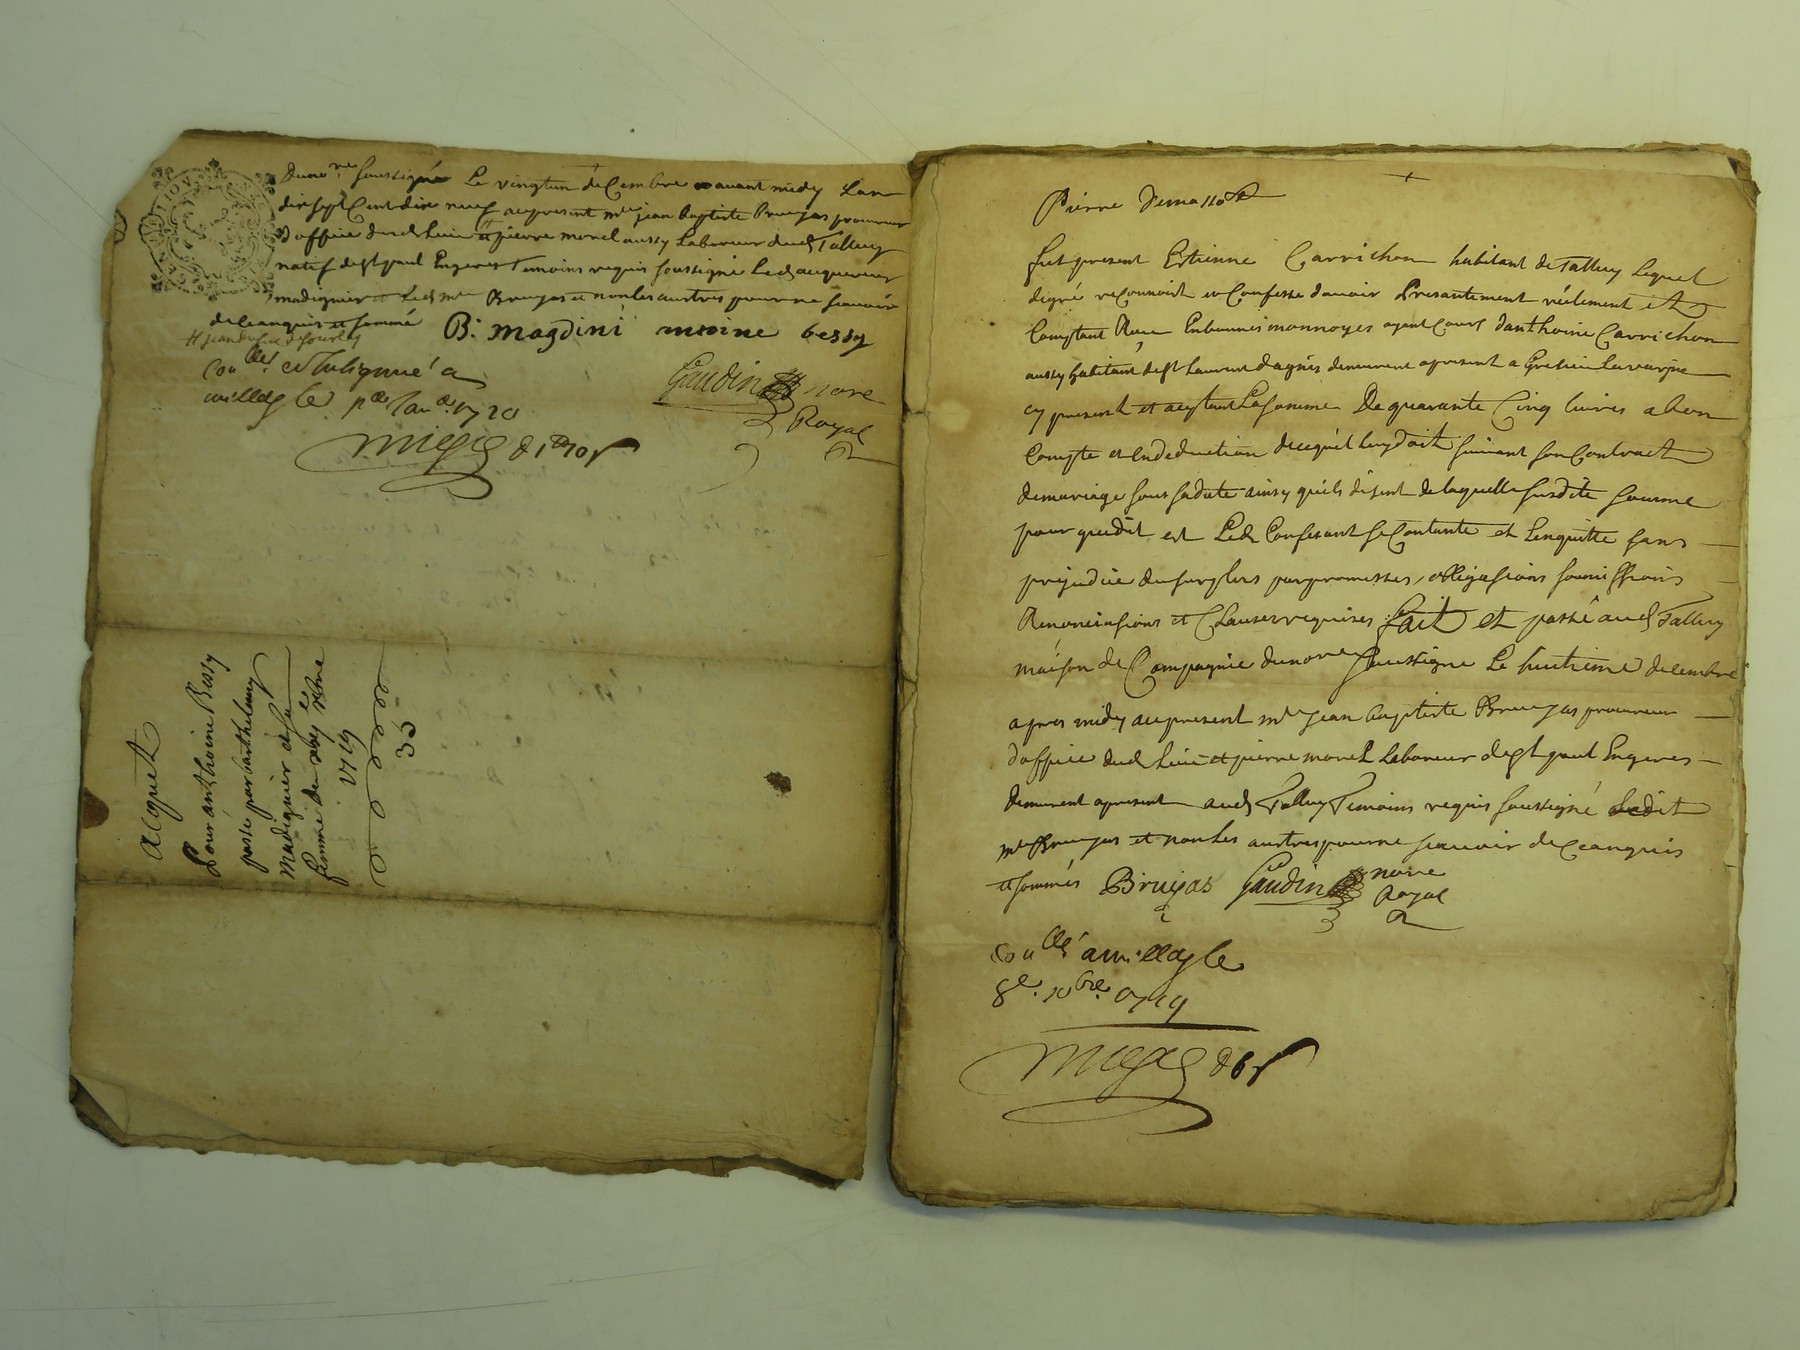 Dunore soussigné Le vingtun decembre avant midy Lan
dix sept Cent dix neuf aupresent mre jean baptiste Bruyas procureur
d'office dud Lieu et pierre morel aussy Laboureur dud Talluy
natif de st paul Engerest Temoins requis soussigné Led acquereur
madignier et Led mre Bruyas et non les austres pour ne scavoir
de ce anquis et sommé B. magdini antoine bessy
Coullé et Insignué a
millery le pre Janr 1720
Gaudin nore
Royal
acquet
Pour anthoine Bessy
passé par barthelemy
madignier et sa
femme du xbre
1719
35
Pierre
fut present Estienne Carrichon habitant de Talluy Lequel
degré reconnoist et Confesse d'avoir Presantement réelement et
Comptant Receu En bonnes monnoyes ayent Cours d'anthoine Carrichon
aussy habitant de st Laurent d'agnis demeurent apresent a
cy present et aceptant La somme De quarante Cinq livres a bon
Compte et En deduction de ce qu'il luy doit suivant son Contract
de mariage sous sa date ainsy qu'ils disent de laquelle susdite somme
pour que dit est Led Confessant se Contante et L'enquitte sans
prejudice du surplus par promesses, obligasions soumissions
Renonciasions et Clauses requises fait et passé aud Talluy
maison de Compagnie du nore soussigne Le huitieme decembre
apres midy aupresent mre jean baptiste Bruyas procureur
d'office dud Lieu et pierre morel Laboureur de st paul Engeres
demeurent apresent aud Talluy Temoins requis soussigné Ledit
mre Bruyas et non les austres pour ne scavoir de ce anquis
et sommés Bruyas Gaudin nore
Royal
Coullé a millery le
8e. 10bre. 1719